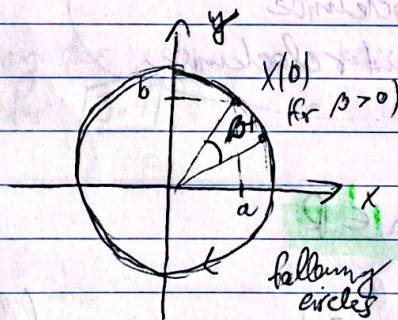 y
b
X(0)
(for β > 0)
βt
x
a
following
circles